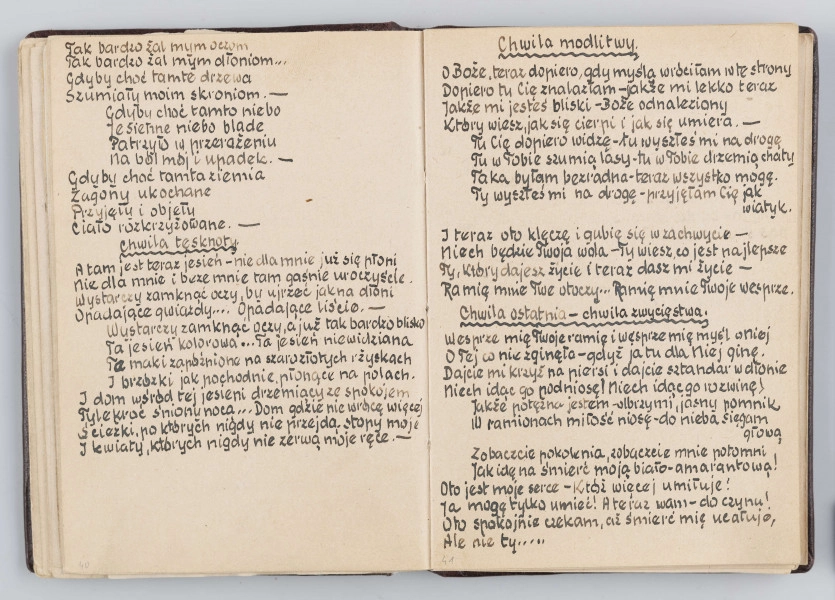 Tak bardzo żal mym oczom
Tak bardzo żal mym dłoniom...
Gdyby choć tamte drzewa
Szumiały moim skroniom. —
Gdyby choć tamto niebo
Jesienne niebo blade
Patrzyło w przerażeniu
Na ból mój i upadek. —
Gdyby choć tamta ziemia
Zagony ukochane
Przyjęły i objęły
Ciało rozkrzyżowane. —
Chwila tęsknoty.
A tam jest teraz jesień - nie dla mnie już się płoni
Nie dla mnie i beze mnie tam gaśnie uroczyście.
Wystarczy zamknąć oczy, by ujrzeć jak na dłoni
Opadające gwiazdy.... Opadające liście. —
Wystarczy zamknąć oczy, a już tak bardzo blisko
Ta jesień kolorowa... Ta jesień niewidziana
Te maki zapóźnione na szarozłotych rżyskach
I brzózki jak pochodnie, płonące na polach.
I dom wśród tej jesieni drzemiący ze spokojem
Tylekroć śniony nocą... Dom gdzie nie wrócę więcej
Ścieżki, po których nigdy nie przejdą stopy moje
I kwiaty, których nigdy nie zerwą moje ręce. —
40
Chwila modlitwy.
O Boże, teraz dopiero, gdy myślą wróciłam w te strony
Dopiero tu Cię znalazłam - jakże mi lekko teraz
Jakże mi jesteś bliski - Boże odnaleziony
Który wiesz, jak się cierpi i jak się umiera. —
Tu Cię dopiero widzę - tu wyszłeś mi na drogę
Tu w Tobie szumią lasy - tu w Tobie drzemią chaty
Taka byłam bezradna - teraz wszystko mogę.
Ty wyszłeś mi na drogę - przyjęłam Cię jak
wiatyk.
I teraz oto klęczę i gubię się w zachwycie —
Niech będzie Twoja wola - Ty wiesz, co jest najlepsze
Ty, który dajesz życie i teraz dasz mi życie —
Ramię mnie Twe otoczy... Ramię mnie Twoje wesprze.
Chwila ostatnia - chwila zwycięstwa.
Wesprze mię Twoje ramię i wesprze mię myśl o Niej
O Tej co nie zginęła - gdyż ja tu dla Niej ginę.
Dajcie mi krzyż na piersi i dajcie sztandar w dłonie
Niech idąc go podniosę! Niech idąc go rozwinę!
Jakże potężna jestem - olbrzymi, jasny pomnik
W ramionach miłość niosę - do nieba sięgam
głową
Zobaczcie pokolenia, zobaczcie mnie potomni
Jak idę na śmierć moją biało-amarantową!
Oto jest moje serce - Któż więcej umiłuje!
Ja mogę tylko umieć! A teraz wam - do czynu!
Oto spokojnie czekam, aż śmierć mię ucałuje,
Ale nie ty.....
41